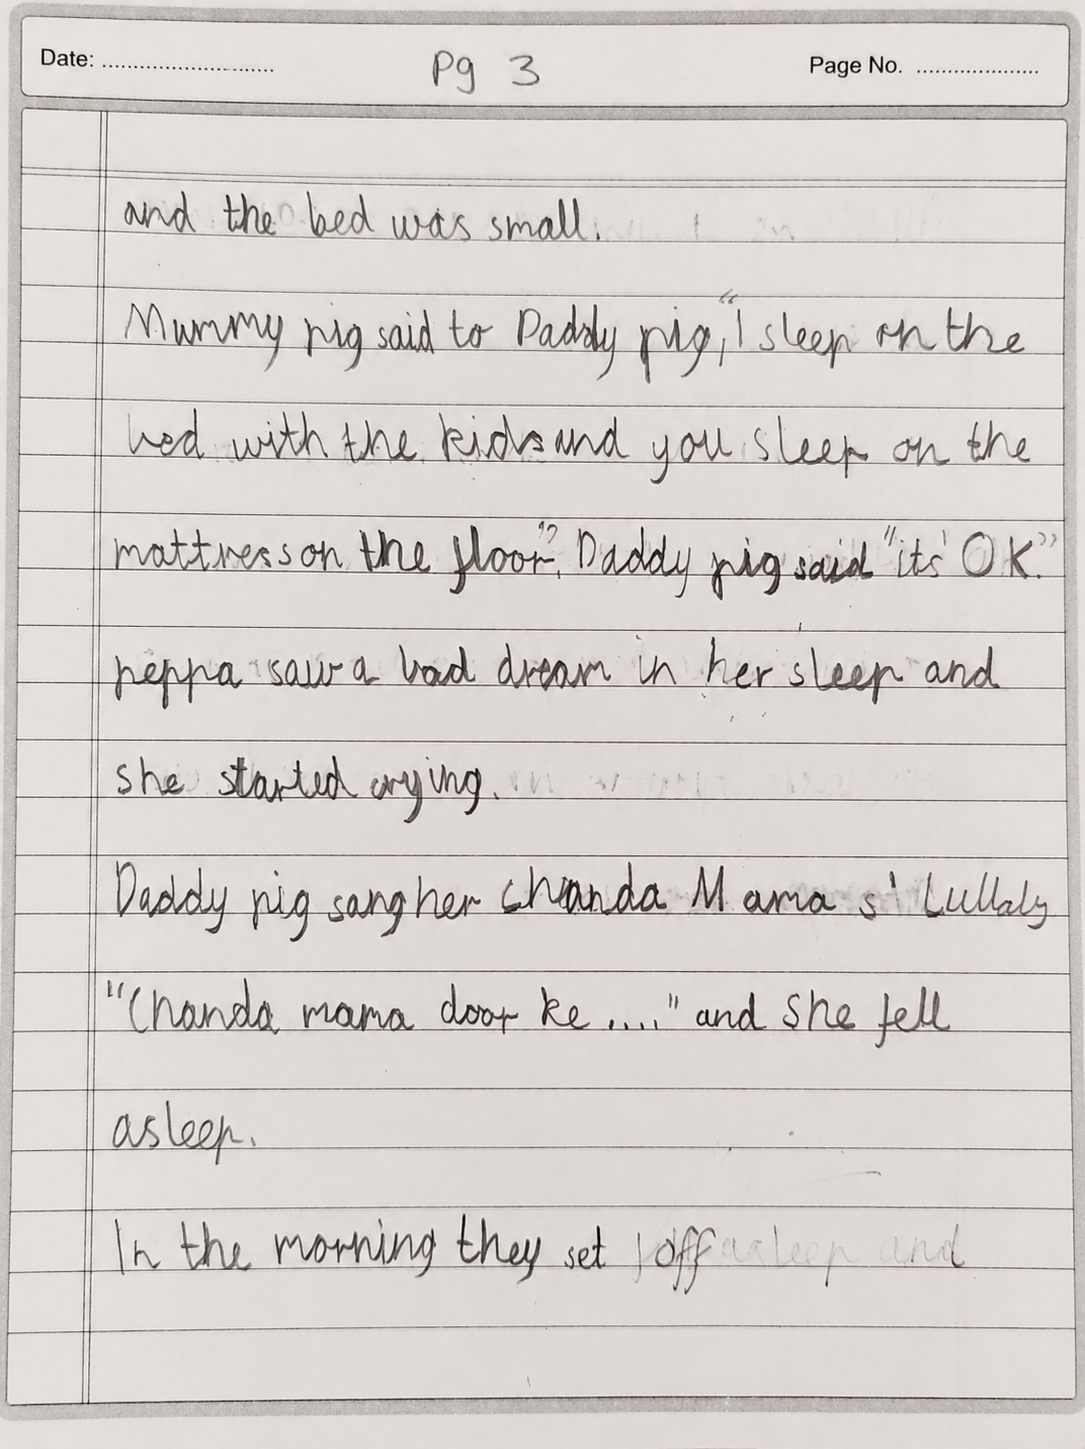 Date: ............................ Pg 3 Page No. ....................
and the bed was small.
Mummy pig said to Daddy pig, "I sleep on the
bed with the kids and you sleep on the
mattress on the floor". Daddy pig said "its' OK."
peppa saw a bad dream in her sleep and
she started crying.
Daddy pig sang her Chanda Mama s' Lullaby
"Chanda mama door ke ...." and she fell
asleep.
In the morning they set off